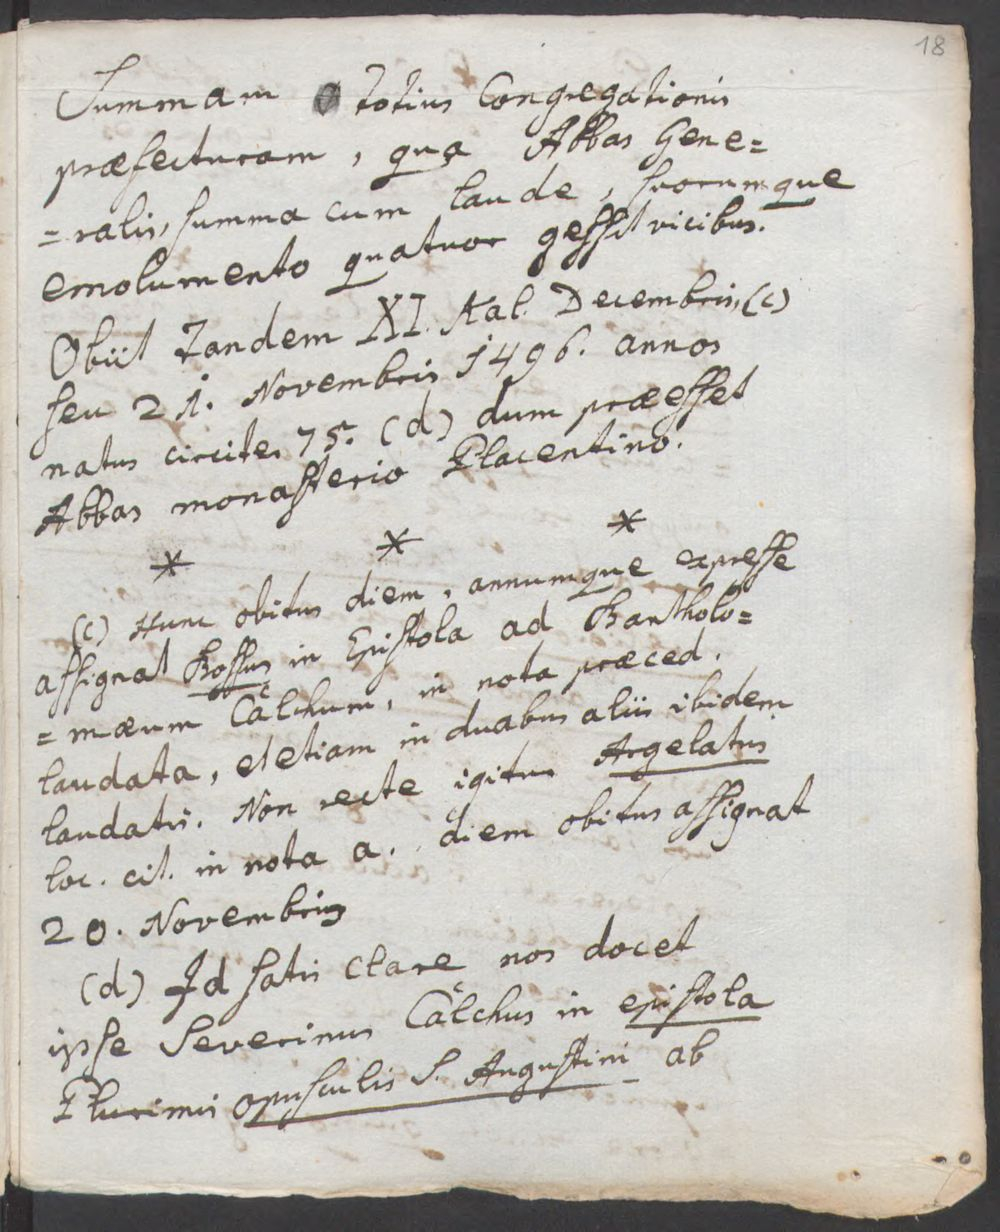 18
Summam totius Congregationis
præfecturam, qua Abbas Gene=
=ralis, summa cum laude, suorumque
emolumento quatuor gessit vicibus.
Obiit tandem XI. Kal. Decembris, (c)
seu 21. Novembris 1496. annos
natus circiter 75. (d) dum præesset
Abbas monasterio Placentino.
* * *
(c) Hunc obitus diem, annumque expresse
assignat Bossus in Epistola ad Bartholo=
=mæum Calchum, in nota præced.
laudata, et etiam in duabus aliis ibidem
laudatis. Non recte igitur Argelatus
loc. cit. in nota a. diem obitus assignat
20. Novembris
(d) Id satis clare nos docet
ipse Severinus Calchus in epistola
Plurimis opusculis S. Augustini ab